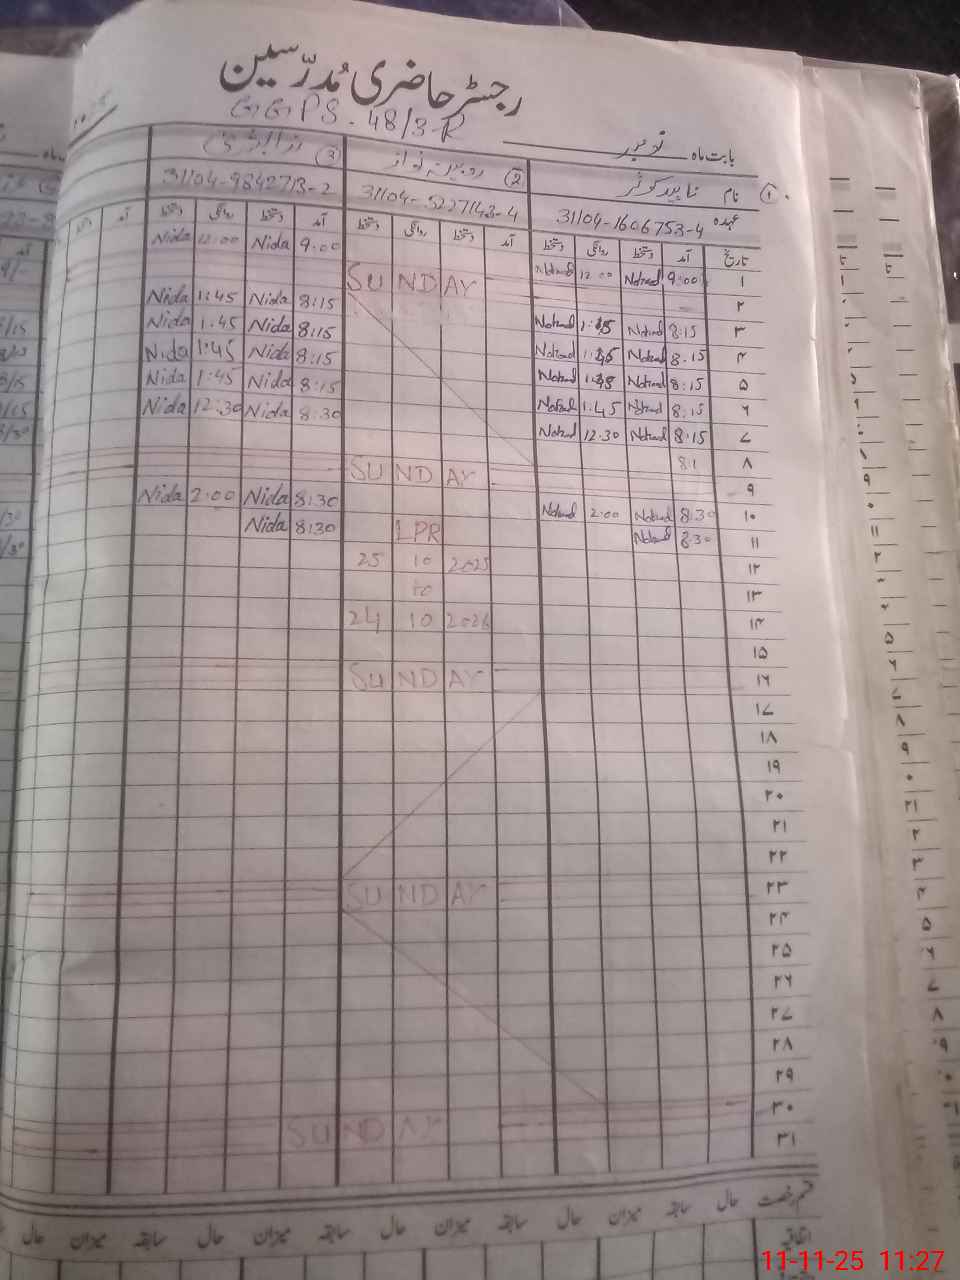 رجسٹر حاضری مُدرّسین
GGPS. 48/3-R
بابت ماہ نومبر
① نام ناہید کوثر ② روبینہ نواز ③
عہدہ 31104-1606753-4 31104-5227143-4 31104-9842713-2
تاریخ آمد دستخط روانگی دستخط آمد دستخط روانگی دستخط آمد دستخط روانگی دستخط آمد
۱ 9:00 Naheed 12:00 Naheed 9:00 Nida 12:00 Nida
۲ SUNDAY
۳ 8:15 Naheed 1:45 Naheed 8:15 Nida 1:45 Nida
۴ 8:15 Naheed 1:45 Naheed 8:15 Nida 1:45 Nida
۵ 8:15 Naheed 1:45 Naheed 8:15 Nida 1:45 Nida
۶ 8:15 Naheed 1:45 Naheed 8:15 Nida 1:45 Nida
۷ 8:15 Naheed 12:30 Naheed 8:30 Nida 12:30 Nida
۸ 8:1
۹ SUNDAY
۱۰ 8:30 Naheed 2:00 Naheed 8:30 Nida 2:00 Nida
۱۱ 8:30 Naheed LPR 8:30 Nida
۱۲ 25 10 2025
۱۳ to
۱۴ 24 10 2026
۱۵
۱۶ SUNDAY
۱۷
۱۸
۱۹
۲۰
۲۱
۲۲
۲۳ SUNDAY
۲۴
۲۵
۲۶
۲۷
۲۸
۲۹
۳۰ SUNDAY
۳۱
قسم رخصت حال سابقہ میزان حال سابقہ میزان حال سابقہ میزان حال سابقہ میزان حال
اتفاقیہ
11-11-25 11:27